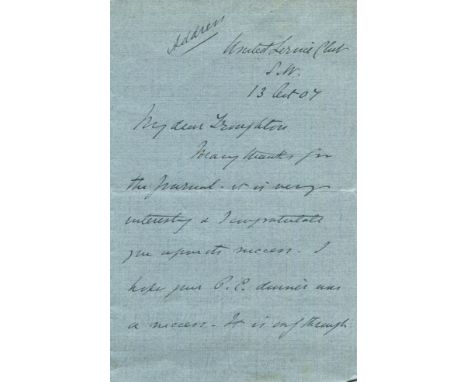 Address
United Service Club
S.W.
13 Oct 07
My dear Troughton
Many thanks for
the Journal - it is very
interesting & I congratulate
you upon its success. I
hope your P.E. dinner was
a success. It is only through